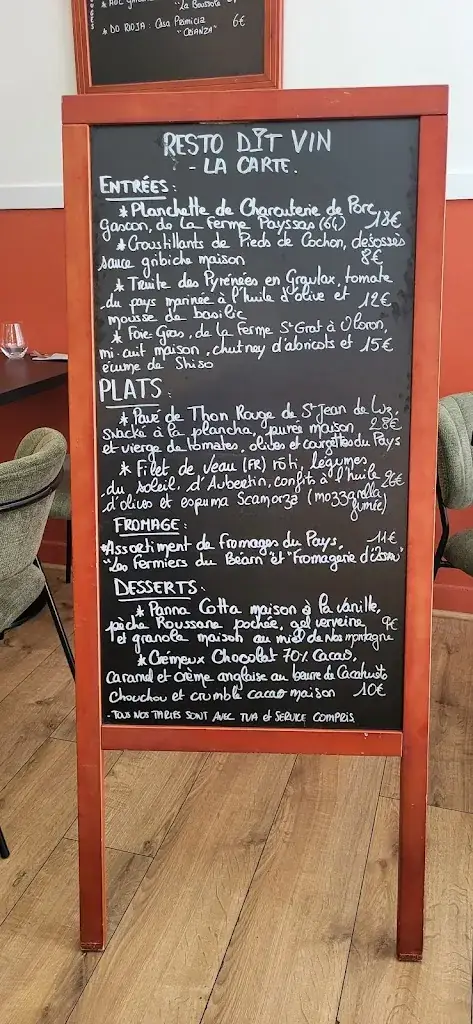 "La Boussole
* DO RIOJA: Casa Primicia 6€
"CRIANZA"
RESTO DÎT VIN
- LA CARTE.
ENTRÉES:
* Planchette de Charcuterie de Porc
gascon, de la ferme Payssas (64) 18€
* Croustillants de Pieds de Cochon, désossés
sauce gribiche maison 8€
* Truite des Pyrénées en Gravlax, tomate
du pays marinée à l'huile d'olive et 12€
mousse de basilic
* Foie Gras, de la Ferme St Grat à Oloron,
mi-cuit maison, chutney d'abricots et 15€
écume de Shiso
PLATS:
* Pavé de Thon Rouge de St Jean de Luz,
snacké à la plancha, purée maison 28€
et vierge de tomates, olives et courgettes du Pays
* Filet de Veau (FR) rôti, légumes
du soleil d'Aubertin, confits à l'huile 26€
d'olives et espuma Scamorze (mozzarella
fumée)
FROMAGE:
* Assortiment de fromages du Pays, 11€
"Les Fermiers du Béarn" et "Fromagerie d'
DESSERTS:
* Panna Cotta maison à la vanille,
pêche Roussane pochée, gel verveine 9€
et granola maison au miel de Nos montagne
* Crémeux Chocolat 70% Cacao,
Caramel et crème anglaise au beurre de Cacahuète
Chouchou et crumble cacao maison 10€
- TOUS NOS TARIFS SONT AVEC TVA et SERVICE COMPRIS